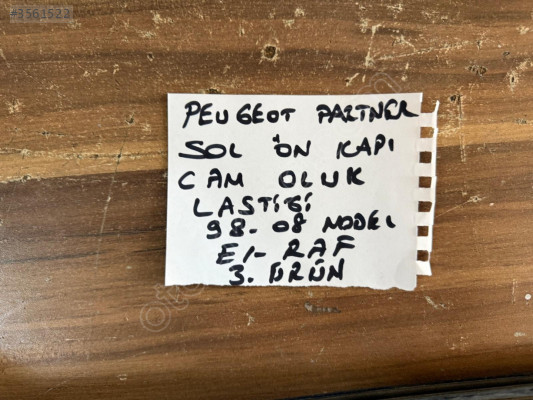 #3561523
PEUGEOT PARTNER
SOL ÖN KAPI
CAM OLUK
LASTİĞİ
98-08 MODEL
E1- RAF
3. ÜRÜN